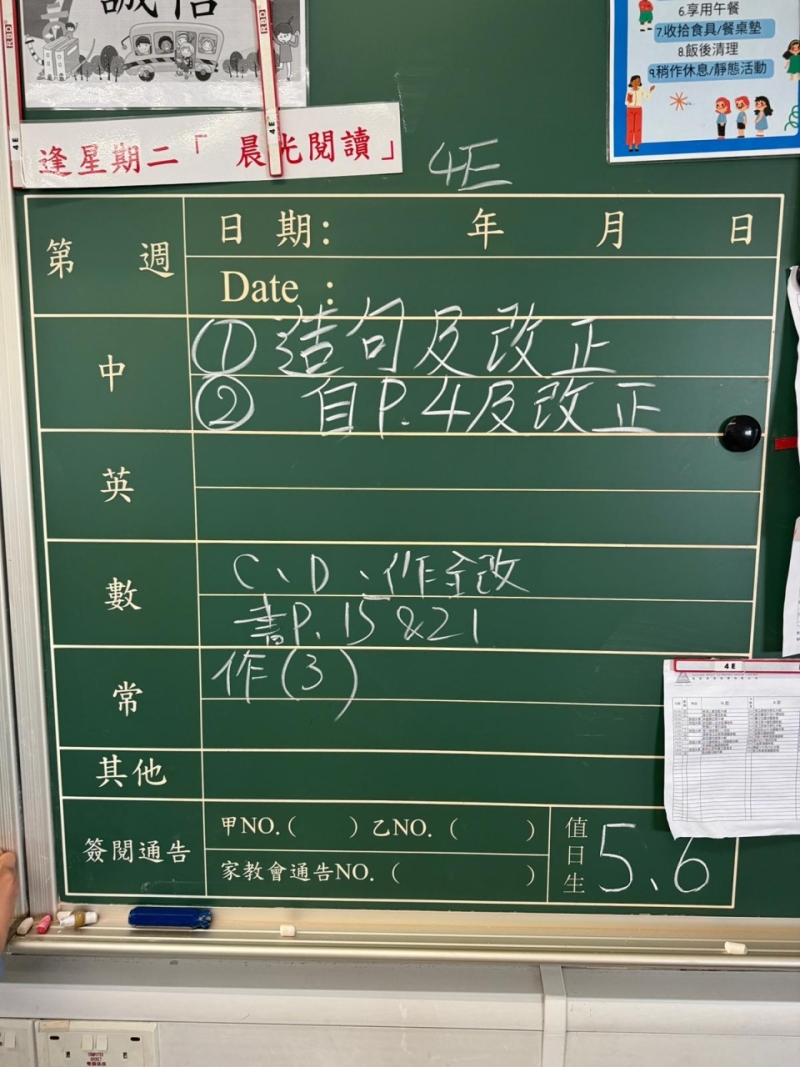 誠信
6.享用午餐
7.收拾食具/餐桌墊
8.飯後清理
9.稍作休息/靜態活動
4E
4E
逢星期二「 晨光閱讀」
4E
第 週
日 期: 年 月 日
Date :
中
①造句及改正
② 自P.4及改正
英
數
C、D、作全改
書P.15&21
常
作(3)
4E
其他
簽閱通告
甲NO.( )乙NO.( )
家教會通告NO.( )
值日生
5、6